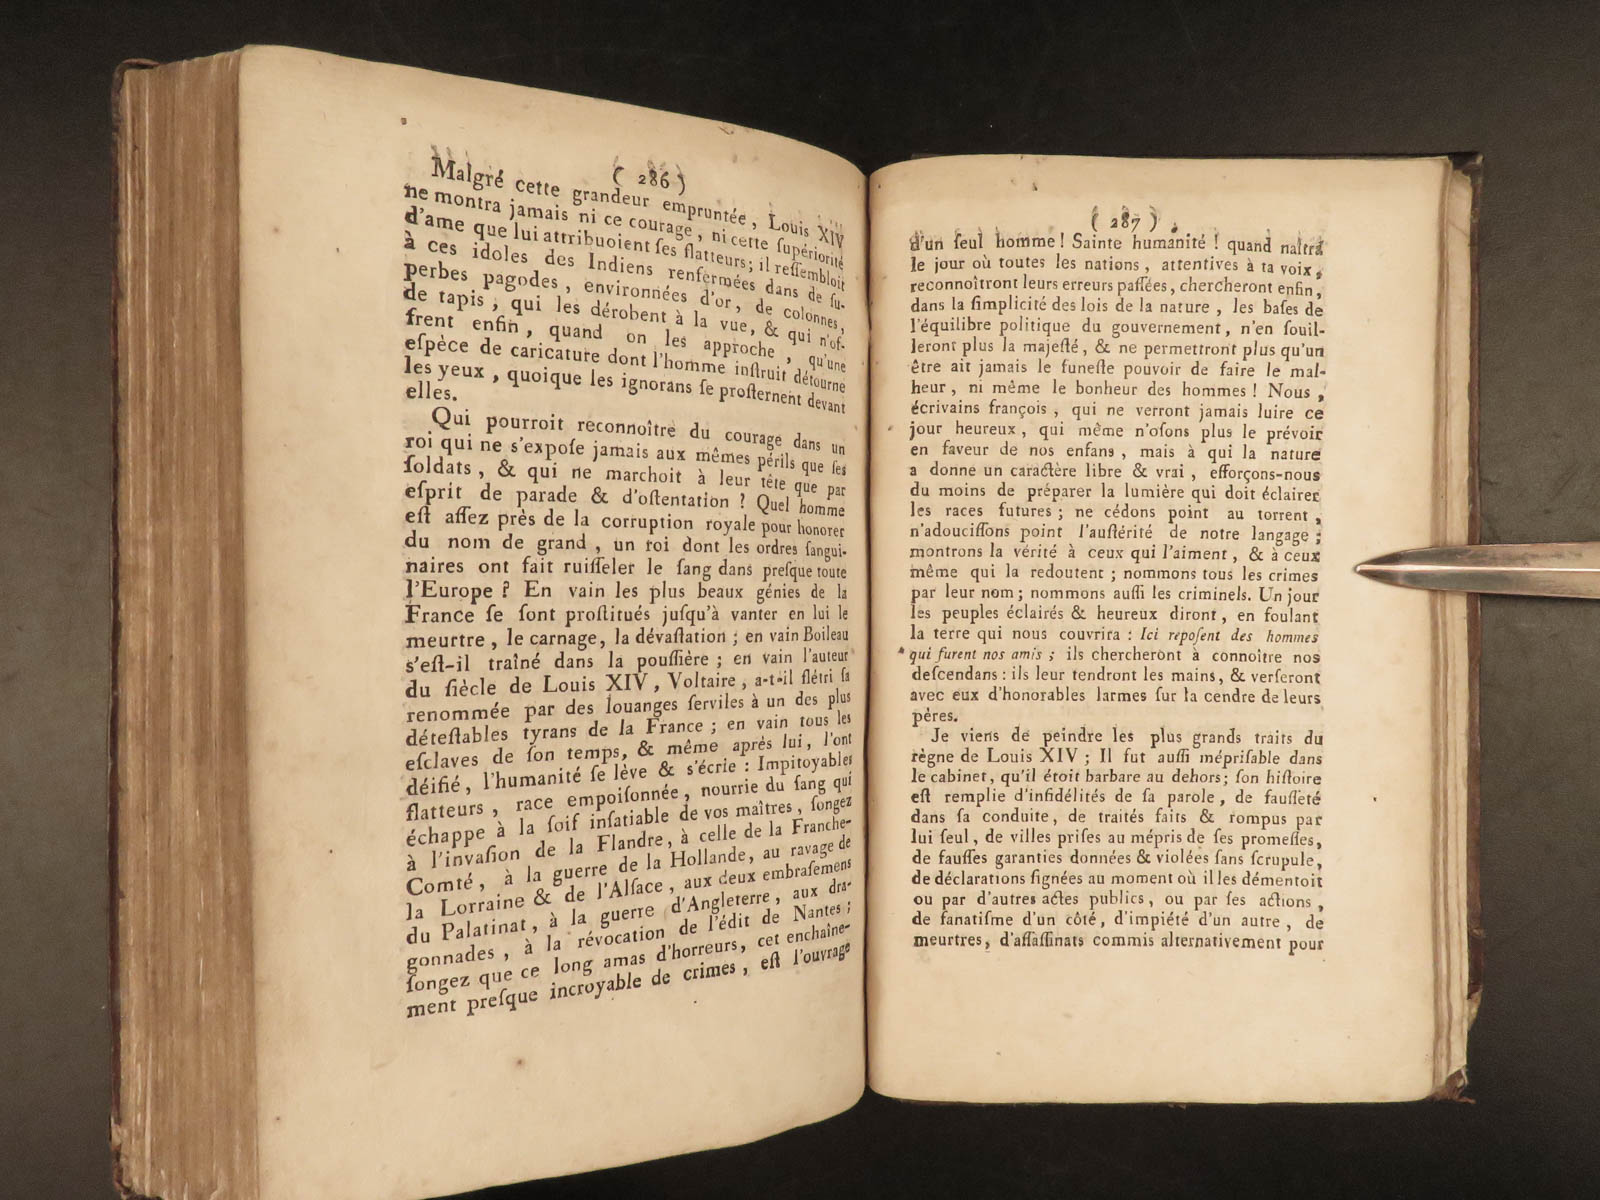 ( 286 )
Malgré cette grandeur empruntée, Louis XIV
ne montra jamais ni ce courage, ni cette ſupériorité
d'ame que lui attribuoient ſes flatteurs; il reſſembloit
à ces idoles des Indiens renfermées dans de ſu-
perbes pagodes, environnées d'or, de colonnes,
de tapis, qui les dérobent à la vue, & qui n'of-
frent enfin, quand on les approche, qu'une
eſpèce de caricature dont l'homme inſtruit détourne
les yeux, quoique les ignorans ſe proſternent devant
elles.
Qui pourroit reconnoître du courage dans un
roi qui ne s'expoſe jamais aux mêmes périls que ſes
ſoldats, & qui ne marchoit à leur tête que par
eſprit de parade & d'oſtentation ? Quel homme
eſt aſſez près de la corruption royale pour honorer
du nom de grand, un roi dont les ordres ſangui-
naires ont fait ruiſſeler le ſang dans preſque toute
l'Europe ? En vain les plus beaux génies de la
France ſe ſont proſtitués juſqu'à vanter en lui le
meurtre, le carnage, la dévaſtation ; en vain Boileau
s'eſt-il traîné dans la pouſſière ; en vain l'auteur
du ſiècle de Louis XIV, Voltaire, a-t-il flétri ſa
renommée par des louanges ſerviles à un des plus
déteſtables tyrans de la France ; en vain tous les
eſclaves de ſon temps, & même après lui, l'ont
déifié, l'humanité ſe lève & s'écrie : Impitoyables
flatteurs, race empoiſonnée, nourrie du ſang qui
échappe à la ſoif inſatiable de vos maîtres, ſongez
à l'invaſion de la Flandre, à celle de la Franche-
Comté, à la guerre de la Hollande, au ravage de
la Lorraine & de l'Alſace, aux deux embraſemens
du Palatinat, à la guerre d'Angleterre, aux dra-
gonnades, à la révocation de l'édit de Nantes ;
ſongez que ce long amas d'horreurs, cet enchaîne-
ment preſque incroyable de crimes, eſt l'ouvrage
( 287 )
d'un ſeul homme ! Sainte humanité ! quand naîtra
le jour où toutes les nations, attentives à ta voix,
reconnoîtront leurs erreurs paſſées, chercheront enfin,
dans la ſimplicité des lois de la nature, les baſes de
l'équilibre politique du gouvernement, n'en ſouil-
leront plus la majeſté, & ne permettront plus qu'un
être ait jamais le funeſte pouvoir de faire le mal-
heur, ni même le bonheur des hommes ! Nous,
écrivains françois, qui ne verront jamais luire ce
jour heureux, qui même n'oſons plus le prévoir
en faveur de nos enfans, mais à qui la nature
a donne un caractère libre & vrai, efforçons-nous
du moins de préparer la lumière qui doit éclairer
les races futures ; ne cédons point au torrent,
n'adouciſſons point l'auſtérité de notre langage ;
montrons la vérité à ceux qui l'aiment, & à ceux
même qui la redoutent ; nommons tous les crimes
par leur nom ; nommons auſſi les criminels. Un jour
les peuples éclairés & heureux diront, en foulant
la terre qui nous couvrira : Ici repoſent des hommes
qui furent nos amis ; ils chercheront à connoître nos
deſcendans : ils leur tendront les mains, & verſeront
avec eux d'honorables larmes ſur la cendre de leurs
pères.
Je viens de peindre les plus grands traits du
règne de Louis XIV ; Il fut auſſi mépriſable dans
le cabinet, qu'il étoit barbare au dehors ; ſon hiſtoire
eſt remplie d'infidélités de ſa parole, de fauſſeté
dans ſa conduite, de traités faits & rompus par
lui ſeul, de villes priſes au mépris de ſes promeſſes,
de fauſſes garanties données & violées ſans ſcrupule,
de déclarations ſignées au moment où il les démentoit
ou par d'autres actes publics, ou par ſes actions,
de fanatiſme d'un côté, d'impiété d'un autre, de
meurtres, d'aſſaſſinats commis alternativement pour